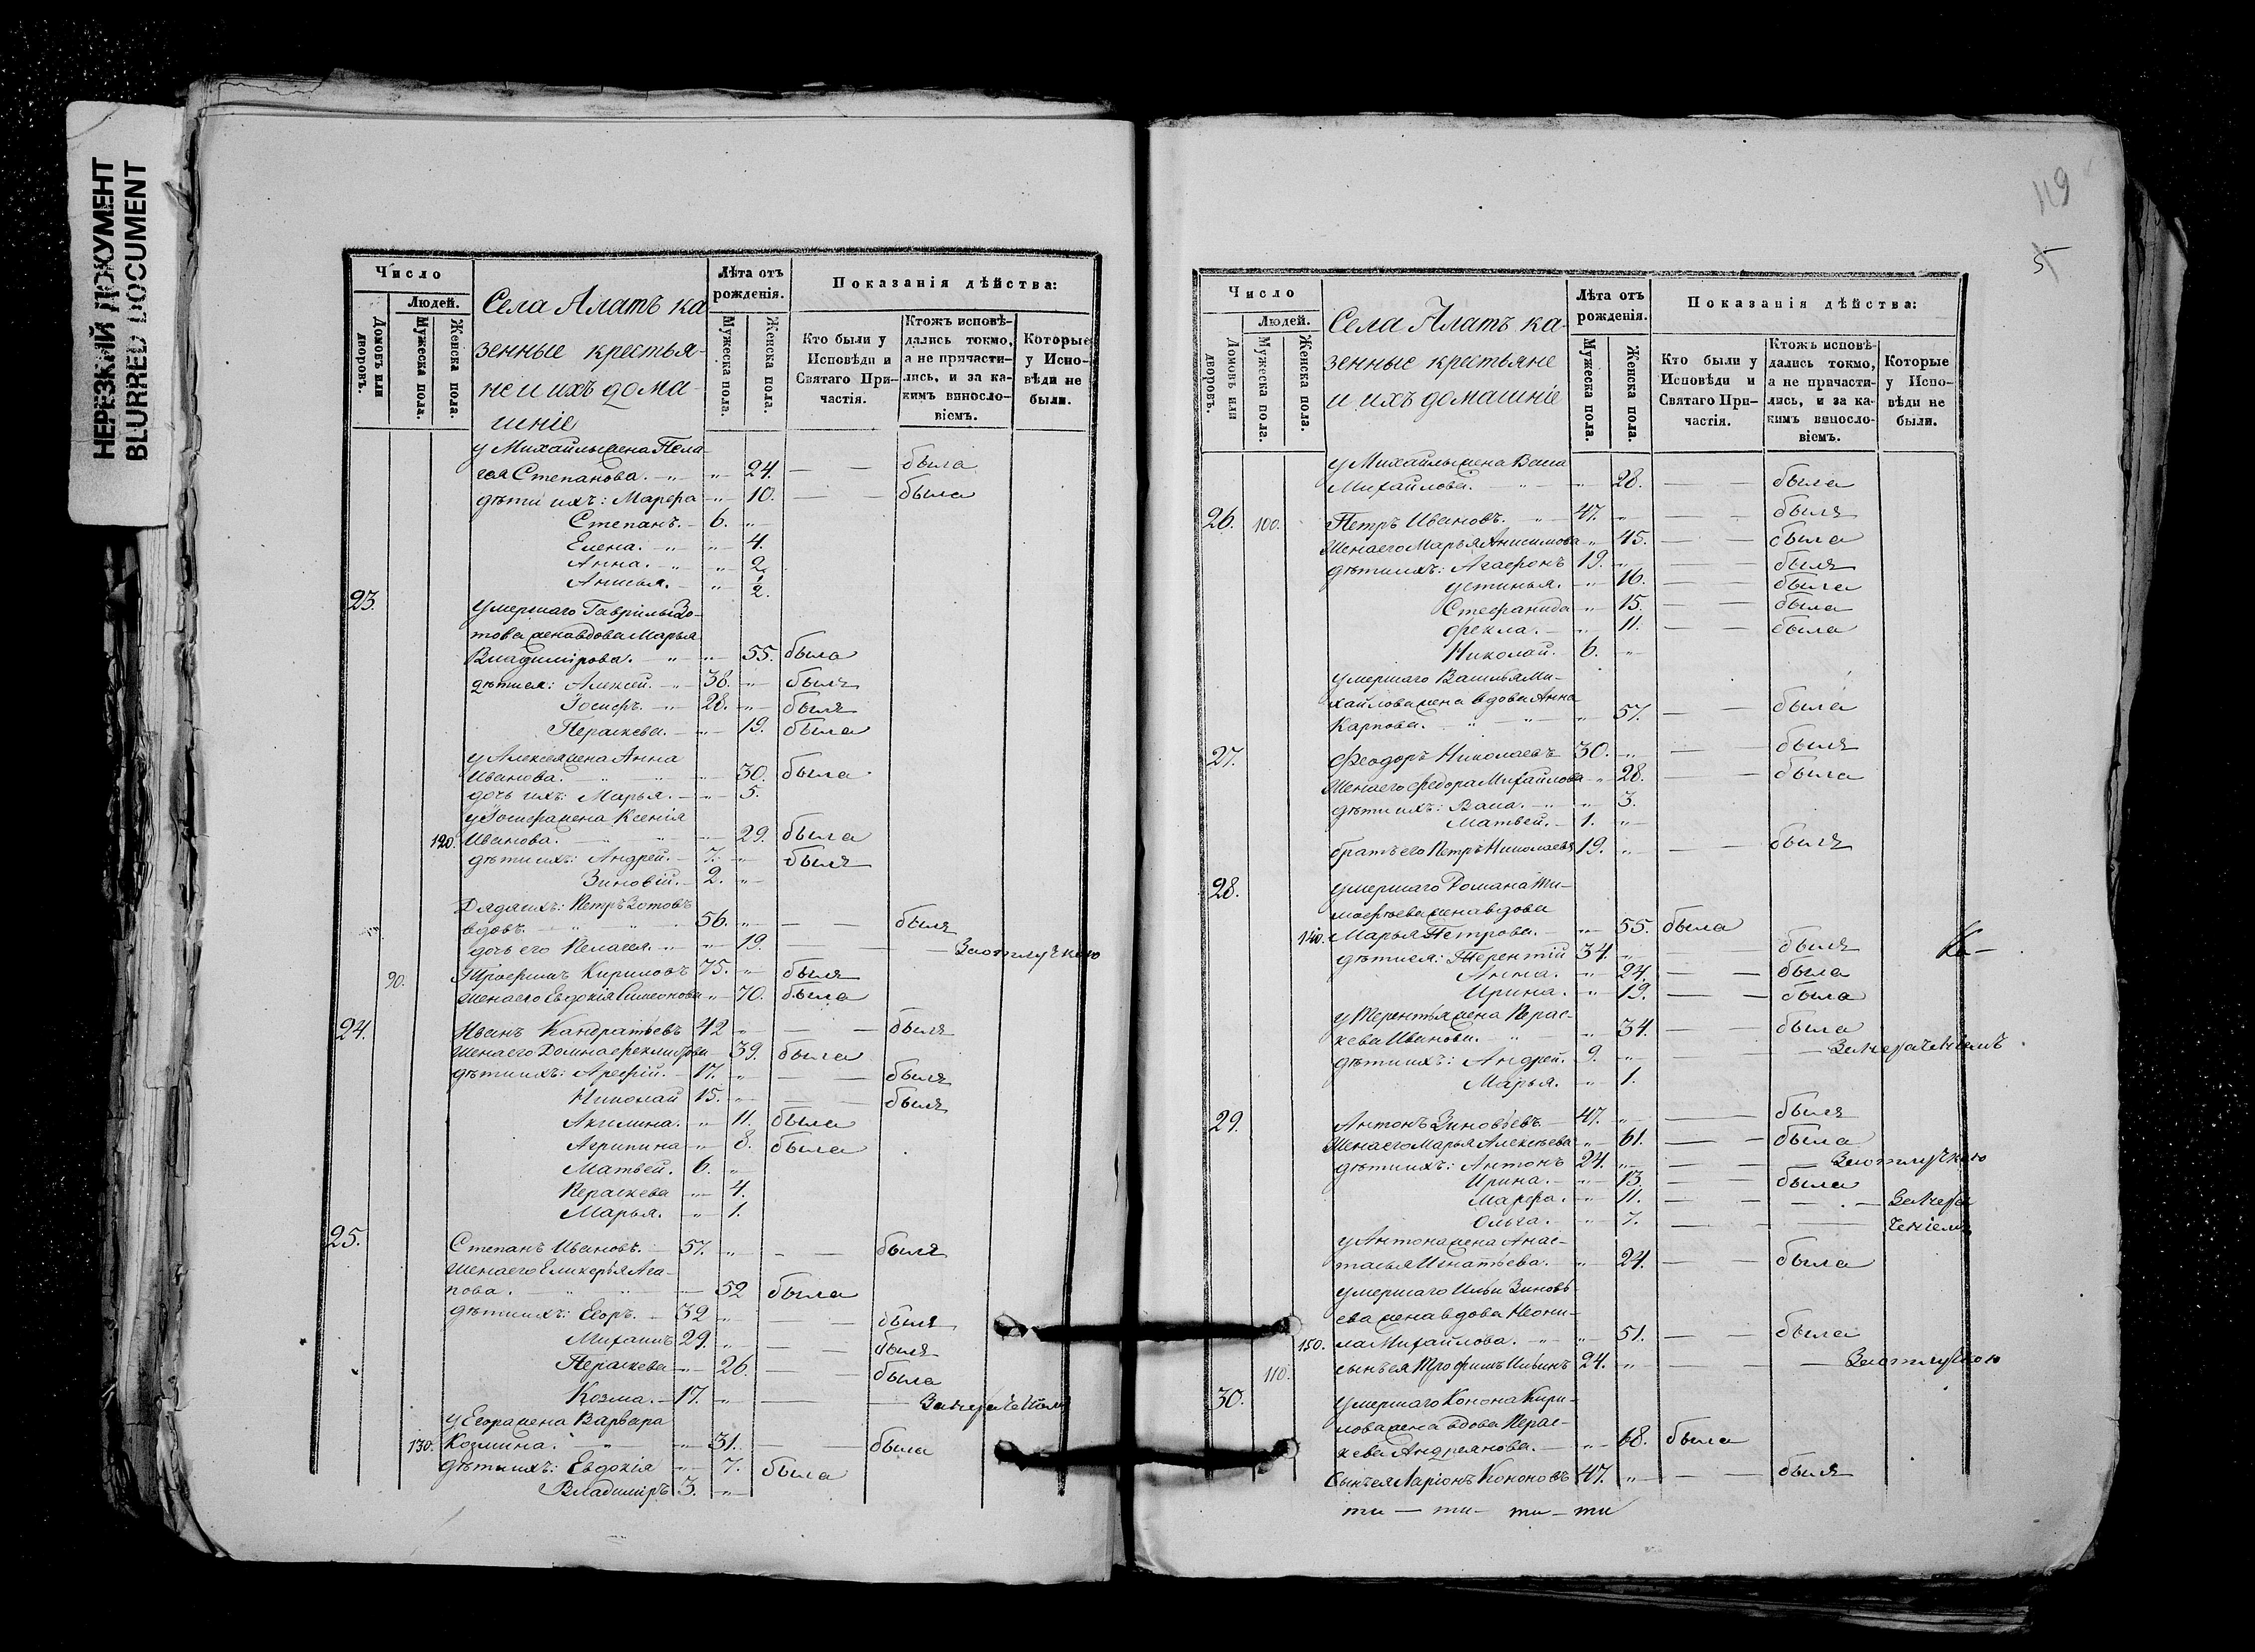 НЕРЕЗКИЙ ДОКУМЕНТ
BLURRED DOCUMENT
Число
Людей.
Домовъ или дворовъ.
Мужеска пола.
Женска пола.
Села Алатъ ка
зенные крестья-
не и ихъ дома-
шніе
Лѣта отъ рожденія.
Мужеска пола.
Женска пола.
Показанія дѣйства:
Кто были у Исповѣди и Святаго При-частія.
Ктожъ исповѣ-дались токмо, а не причасти-лись, и за ка-кимъ винословіемъ.
Которые у Испо-вѣди не были.
у Михайлы жена Пела-
гея Степанова. -„- „ 24. — — была
дѣти ихъ: Марѳа -„- 10. — — была
Степанъ. - 6. „
Елена. -„- „ 4.
Анна. -„- „ 2.
Анисья. - „ ½.
23.
Умершаго Гаврилы Зо-
това жена вдова Марья
Владимірова. - „ - 55. была
дѣти ея: Алексей. -„- 38. „ былъ
Іосифъ. -„- 28. „ былъ
Параскева. - „ 19. была
у Алексея жена Анна
Иванова. - „ 30. была
дочь ихъ: Марья. - „ 5.
у Іосифа жена Ксенія
120. Иванова. - „ 29. была
дѣти ихъ: Андрей. - 7. „ былъ
Зиновій. - 2. „
Дядя ихъ: Петръ Зотовъ
вдовъ. „ 56. „ — — былъ
дочь его Пелагея. -„ „ 19. — — — За отлучкою
90. Трофимъ Кириловъ 75. „ былъ
жена его Евдокія Симеонова „ 70. была
24. Иванъ Кандратьевъ 42 „ — — былъ
жена его Домна - 39. была
дѣти ихъ: Арефій. - 17. „ — — былъ
Николай 15. „ — — былъ
Акилина. „ 11. была
Агрипина „ 8. была
Матвей. 6. „
Параскева „ 4.
Марья. „ 1.
25.
Степанъ Ивановъ. - 57. „ - — былъ
жена его Гликерья Ага-
пова. - „ - 52 была
дѣти ихъ: Егоръ. - 32 „ — — былъ
Михаилъ 29. „ — — былъ
Параскева - 26. — — была
Козма. - 17. „ — — За нераченіемъ
у Егора жена Варвара
130. Козмина. „ 31. — была
дѣти ихъ: Евдокія „ 7. была
Владиміръ 3. „
119
5
Число
Людей.
Домовъ или дворовъ.
Мужеска пола.
Женска пола.
Села Алатъ ка-
зенные крестьяне
и ихъ домашніе
Лѣта отъ рожденія.
Мужеска пола.
Женска пола.
Показанія дѣйства:
Кто были у Исповѣди и Святаго При-частія.
Ктожъ исповѣ-дались токмо, а не причасти-лись, и за ка-кимъ винословіемъ.
Которые у Испо-вѣди не были.
у Михайлы жена Васса
Михайлова. - „ - „ 28. — — была
26. 100. Петръ Ивановъ. „ 47. „ — — былъ
жена его Марья Анисимова „ 45. — — была
дѣти ихъ: Агафонъ 19. „ — — былъ
Устинья. „ 16. — — была
Стефанида „ 15. — — была
Ѳекла. - „ 11. — — была
Николай. - 6. „
умершаго Василья Ми-
хайлова жена вдова Анна
Карпова. „ „ 57. — — была
27. Феодоръ Николаевъ 30. „ — — былъ
жена его Федора Михайлова „ 28. — — была
дѣти ихъ: Васса. -„- „ 3.
Матвей. - 1. „
братъ его Петръ Николаевъ 19. „ — — былъ
28. умершаго Романа Ти-
мофѣева жена вдова
140. Марья Петрова. - „ 55. была
дѣти ея: Терентій 34. „ — былъ Ка-
Анна. - „ 24. — — была
Ирина. - „ 19. — — была
у Терентья жена Парас-
кева Иванова. „ 34. — — была
дѣти ихъ: Андрей. 9. „ — — За нераченіемъ
Марья. - „ 1.
29. Антонъ Зиновьевъ - 47. „ — — былъ
жена его Марья Алексѣева „ 61. — — была
дѣти ихъ: Антонъ 24. „ — — За отлучкою
Ирина. - „ 13 — — была
Марѳа. - „ 11. — — — За нера
Ольга. - „ 7. — — — ченіемъ
у Антона жена Анас-
тасья Игнатьева. - „ 24. — — была
умершаго Ильи Зиновь-
ева жена вдова Неони-
150. ла Михайлова. „ 51. — — была
110. сынъ ея Трофимъ Ильинъ 24. „ — — За отлучкою
30. умершаго Конона Кири-
лова жена вдова Парас-
кева Андреянова. - „ 68. была
Сынъ ея Ларіонъ Кононовъ 47. „ — — былъ
ти — ти - ти - ти